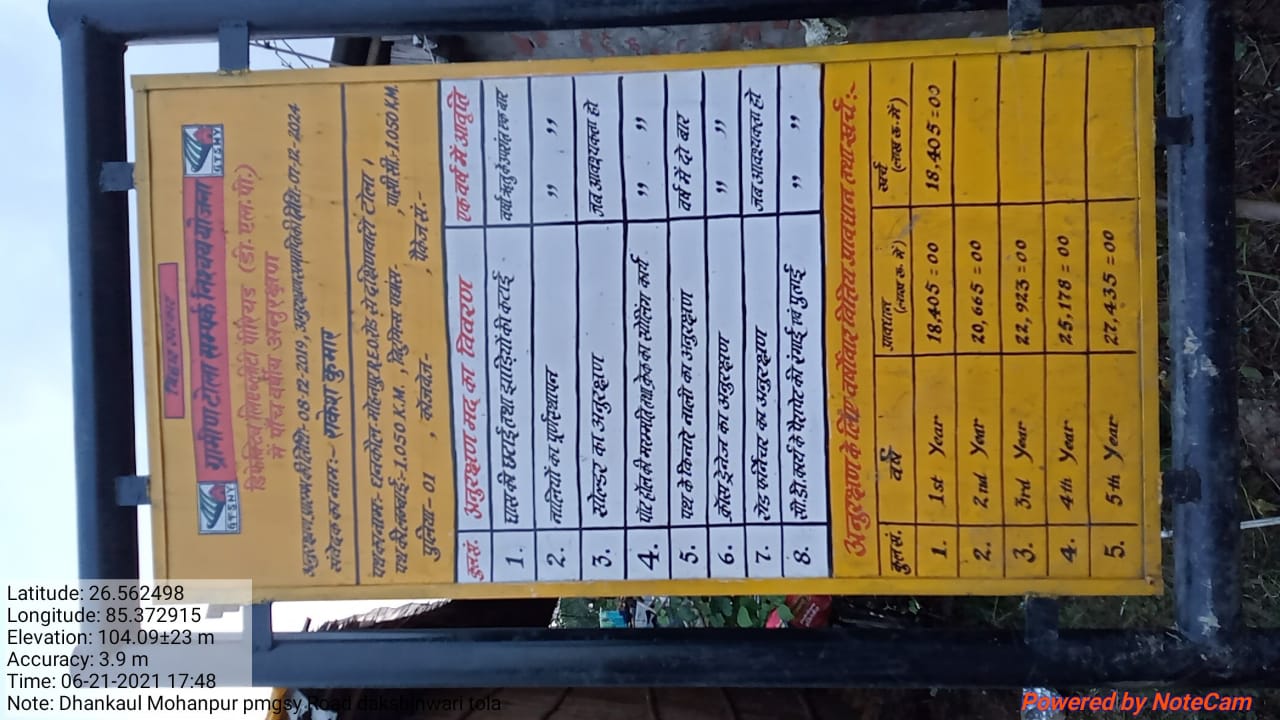 बिहार सरकार
ग्रामीण टोला सम्पर्क निश्चय योजना
G.T.S.N.Y
G.T.S.N.Y
डिफेक्टिव लिएबलीटी पीरियड (डी. एल. पी.)
में पाँच वर्षीय अनुरक्षण
अनुरक्षण आरम्भ की तिथि:- 08-12-2019, अनुरक्षण समाप्ति की तिथि:-07-12-2024
संवेदक का नाम:- राकेश कुमार
पथ का नाम:- धनकौल मोहनपुर R.E.O रोड से दक्षिणवारी टोला।
पथ की लम्बाई:-1.050 K.M. , बिटुमिनस पक्कस:- , पी.सी.सी.:-1.050 K.M.
पुलिया:- 01 , कॉजवेल:- , पैकेज सं.:-
क्रु.सं. अनुरक्षण मद का विवरण एक वर्ष में आवृति
1. घास की छराई तथा झाड़ियों की कटाई वर्षा ऋतु के उपरांत एक बार
2. नालियों का पूर्णस्थापन ,, ,,
3. सोल्डर का अनुरक्षण जब आवश्यकता हो
4. पॉट होल की मरम्मति तथा क्रेक का सीलिंग कार्य ,, ,,
5. पथ के किनारे नाली का अनुरक्षण वर्ष में दो बार
6. क्रॉस ड्रेनेज का अनुरक्षण ,, ,,
7. रोड फर्निचर का अनुरक्षण जब आवश्यकता हो
8. सी.डी. कार्य के पैरापेट की रंगाई एवं पुताई ,, ,,
अनुरक्षण के लिए वर्षवार वित्तिय प्रावधान तथा खर्च:-
क्रु.सं. वर्ष प्रावधान (लाख रू. में) खर्च (लाख रू. में)
1. 1st Year 18,405=00 18,405=00
2. 2nd Year 20,665=00
3. 3rd Year 22,923=00
4. 4th Year 25,178=00
5. 5th Year 27,435=00
Latitude: 26.562498
Longitude: 85.372915
Elevation: 104.09±23 m
Accuracy: 3.9 m
Time: 06-21-2021 17:48
Note: Dhankaul Mohanpur pmgsy Road dakshinwari tola
Powered by NoteCam